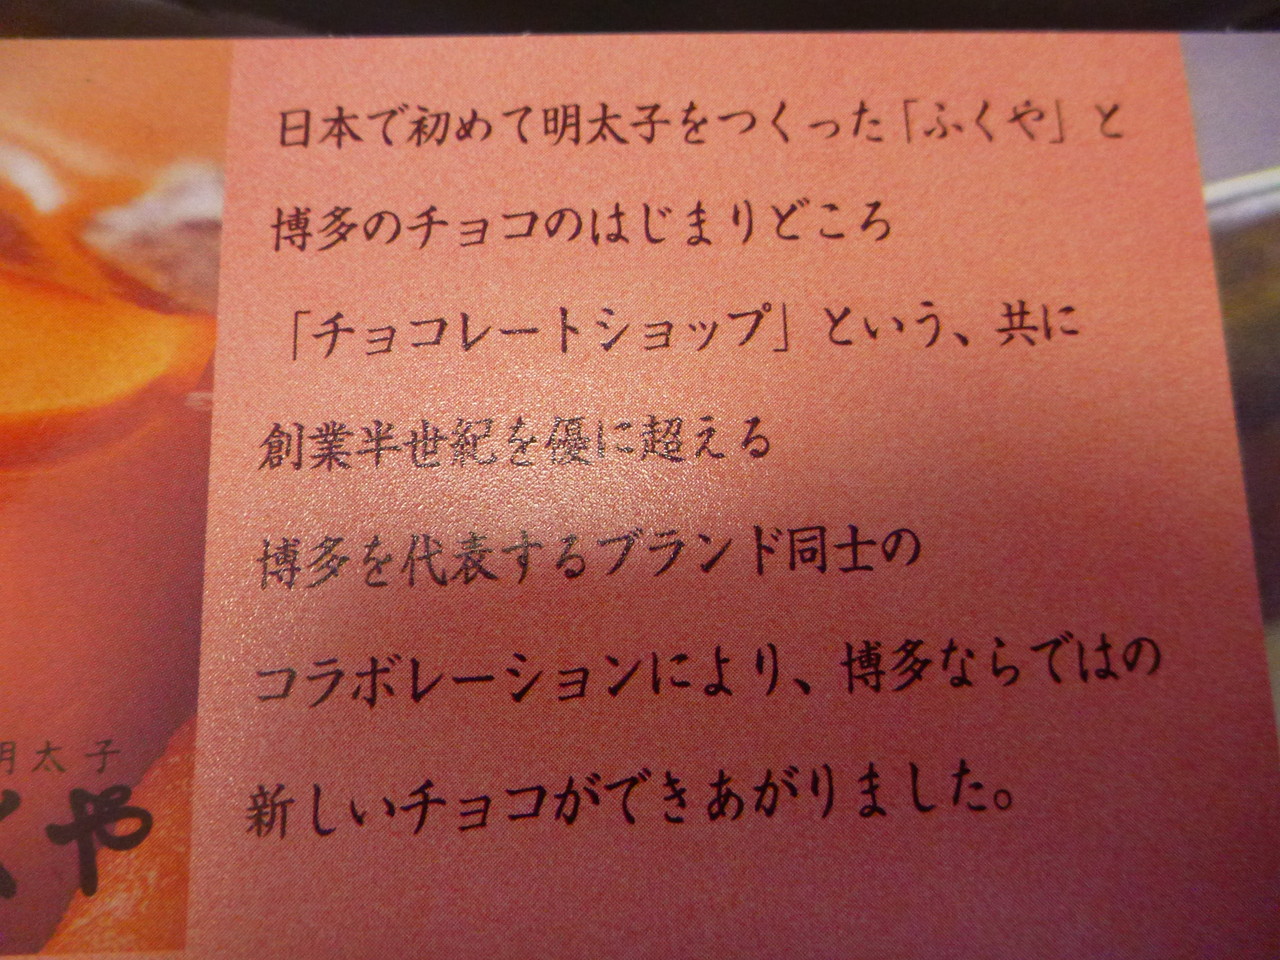 日本で初めて明太子をつくった「ふくや」と
博多のチョコのはじまりどころ
「チョコレートショップ」という、共に
創業半世紀を優に超える
博多を代表するブランド同士の
コラボレーションにより、博多ならではの
新しいチョコができあがりました。
明太子
くや